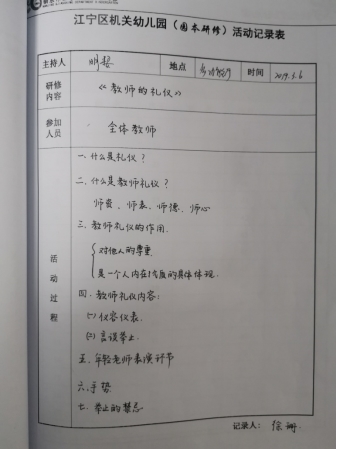 江宁区机关幼儿园（园本研修）活动记录表
主持人 地点 多功能厅 时间 2019.5.6
研修内容 《教师的礼仪》
参加人员 全体教师
活动过程
一、什么是礼仪？
二、什么是教师礼仪？
师贵、师表、师德、师心
三、教师礼仪的作用.
对他人的尊重
是一个人内在素质的具体体现.
四、教师礼仪内容：
(一)仪容仪表.
(二)言谈举止.
五、年轻老师表演环节
六、手势
七、举止的禁忌
记录人：徐珊.